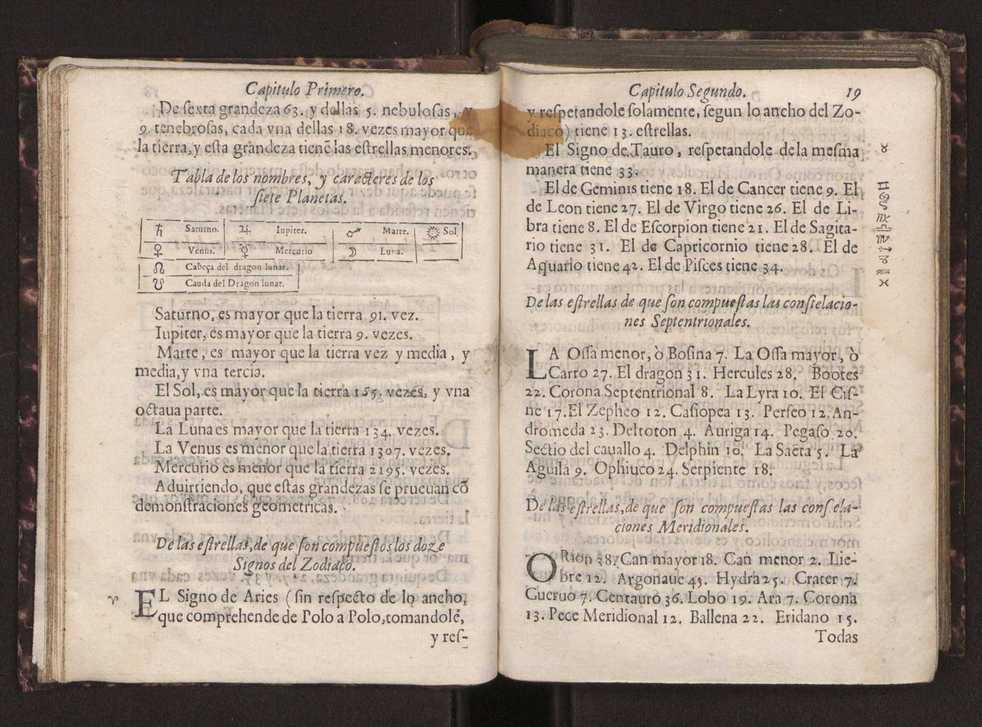 Capitulo Primero.
De sexta grandeza 63. y dellas 5. nebulosas, y
9. tenebrosas, cada vna dellas 18. vezes mayor que
la tierra, y esta grandeza tienẽ las estrellas menores.
Tabla de los nombres, y caracteres de los
siete Planetas.
♄ Saturno. ♃ Iupiter. ♂ Marte. ☉ Sol
♀ Venus. ☿ Mercurio ☽ Luna.
☊ Cabeça del dragon lunar.
☋ Cauda del Dragon lunar.
Saturno, es mayor que la tierra 91. vez.
Iupiter, es mayor que la tierra 9. vezes.
Marte, es mayor que la tierra vez y media, y
media, y vna tercia.
El Sol, es mayor que la tierra 155. vezes, y vna
octaua parte.
La Luna es mayor que la tierra 134. vezes.
La Venus es menor que la tierra 1307. vezes.
Mercurio es menor que la tierra 2195. vezes.
Aduirtiendo, que estas grandezas se prueuan cõ
demonstraciones geometricas.
De las estrellas, de que son compuestos los doze
Signos del Zodiaco.
♈ EL Signo de Aries (sin respecto de lo ancho,
que comprehende de Polo a Polo, tomandole,
y res-
Capitulo Segundo. 19
y respetandole solamente, segun lo ancho del Zo-
diaco) tiene 13. estrellas.
El Signo de Tauro, respetandole de la mesma ♉
manera tiene 33.
El de Geminis tiene 18. El de Cancer tiene 9. El ♊
de Leon tiene 27. El de Virgo tiene 26. El de Li- ♋
bra tiene 8. El de Escorpion tiene 21. El de Sagita-
rio tiene 31. El de Capricornio tiene 28. El de
Aquario tiene 42. El de Pisces tiene 34. ♒ ♓
De las estrellas de que son compuestas las constelacio-
nes Septentrionales.
LA Ossa menor, ò Bosina 7. La Ossa mayor, ò
Carro 27. El dragon 31. Hercules 28. Bootes
22. Corona Septentrional 8. La Lyra 10. El Cis-
ne 17. El Zepheo 12. Casiopea 13. Perseo 12. An-
dromeda 23. Deltoton 4. Auriga 14. Pegaso 20.
Sectio del cauallo 4. Delphin 10. La Saeta 5. La
Aguila 9. Ophiuco 24. Serpiente 18.
De las estrellas, de que son compuestas las constela-
ciones Meridionales.
ORion 38. Can mayor 18. Can menor 2. Lie-
bre 12. Argonaue 45. Hydra 25. Crater 7.
Cueruo 7. Centauro 36. Lobo 19. Ara 7. Corona
13. Pece Meridional 12. Ballena 22. Eridano 15.
Todas